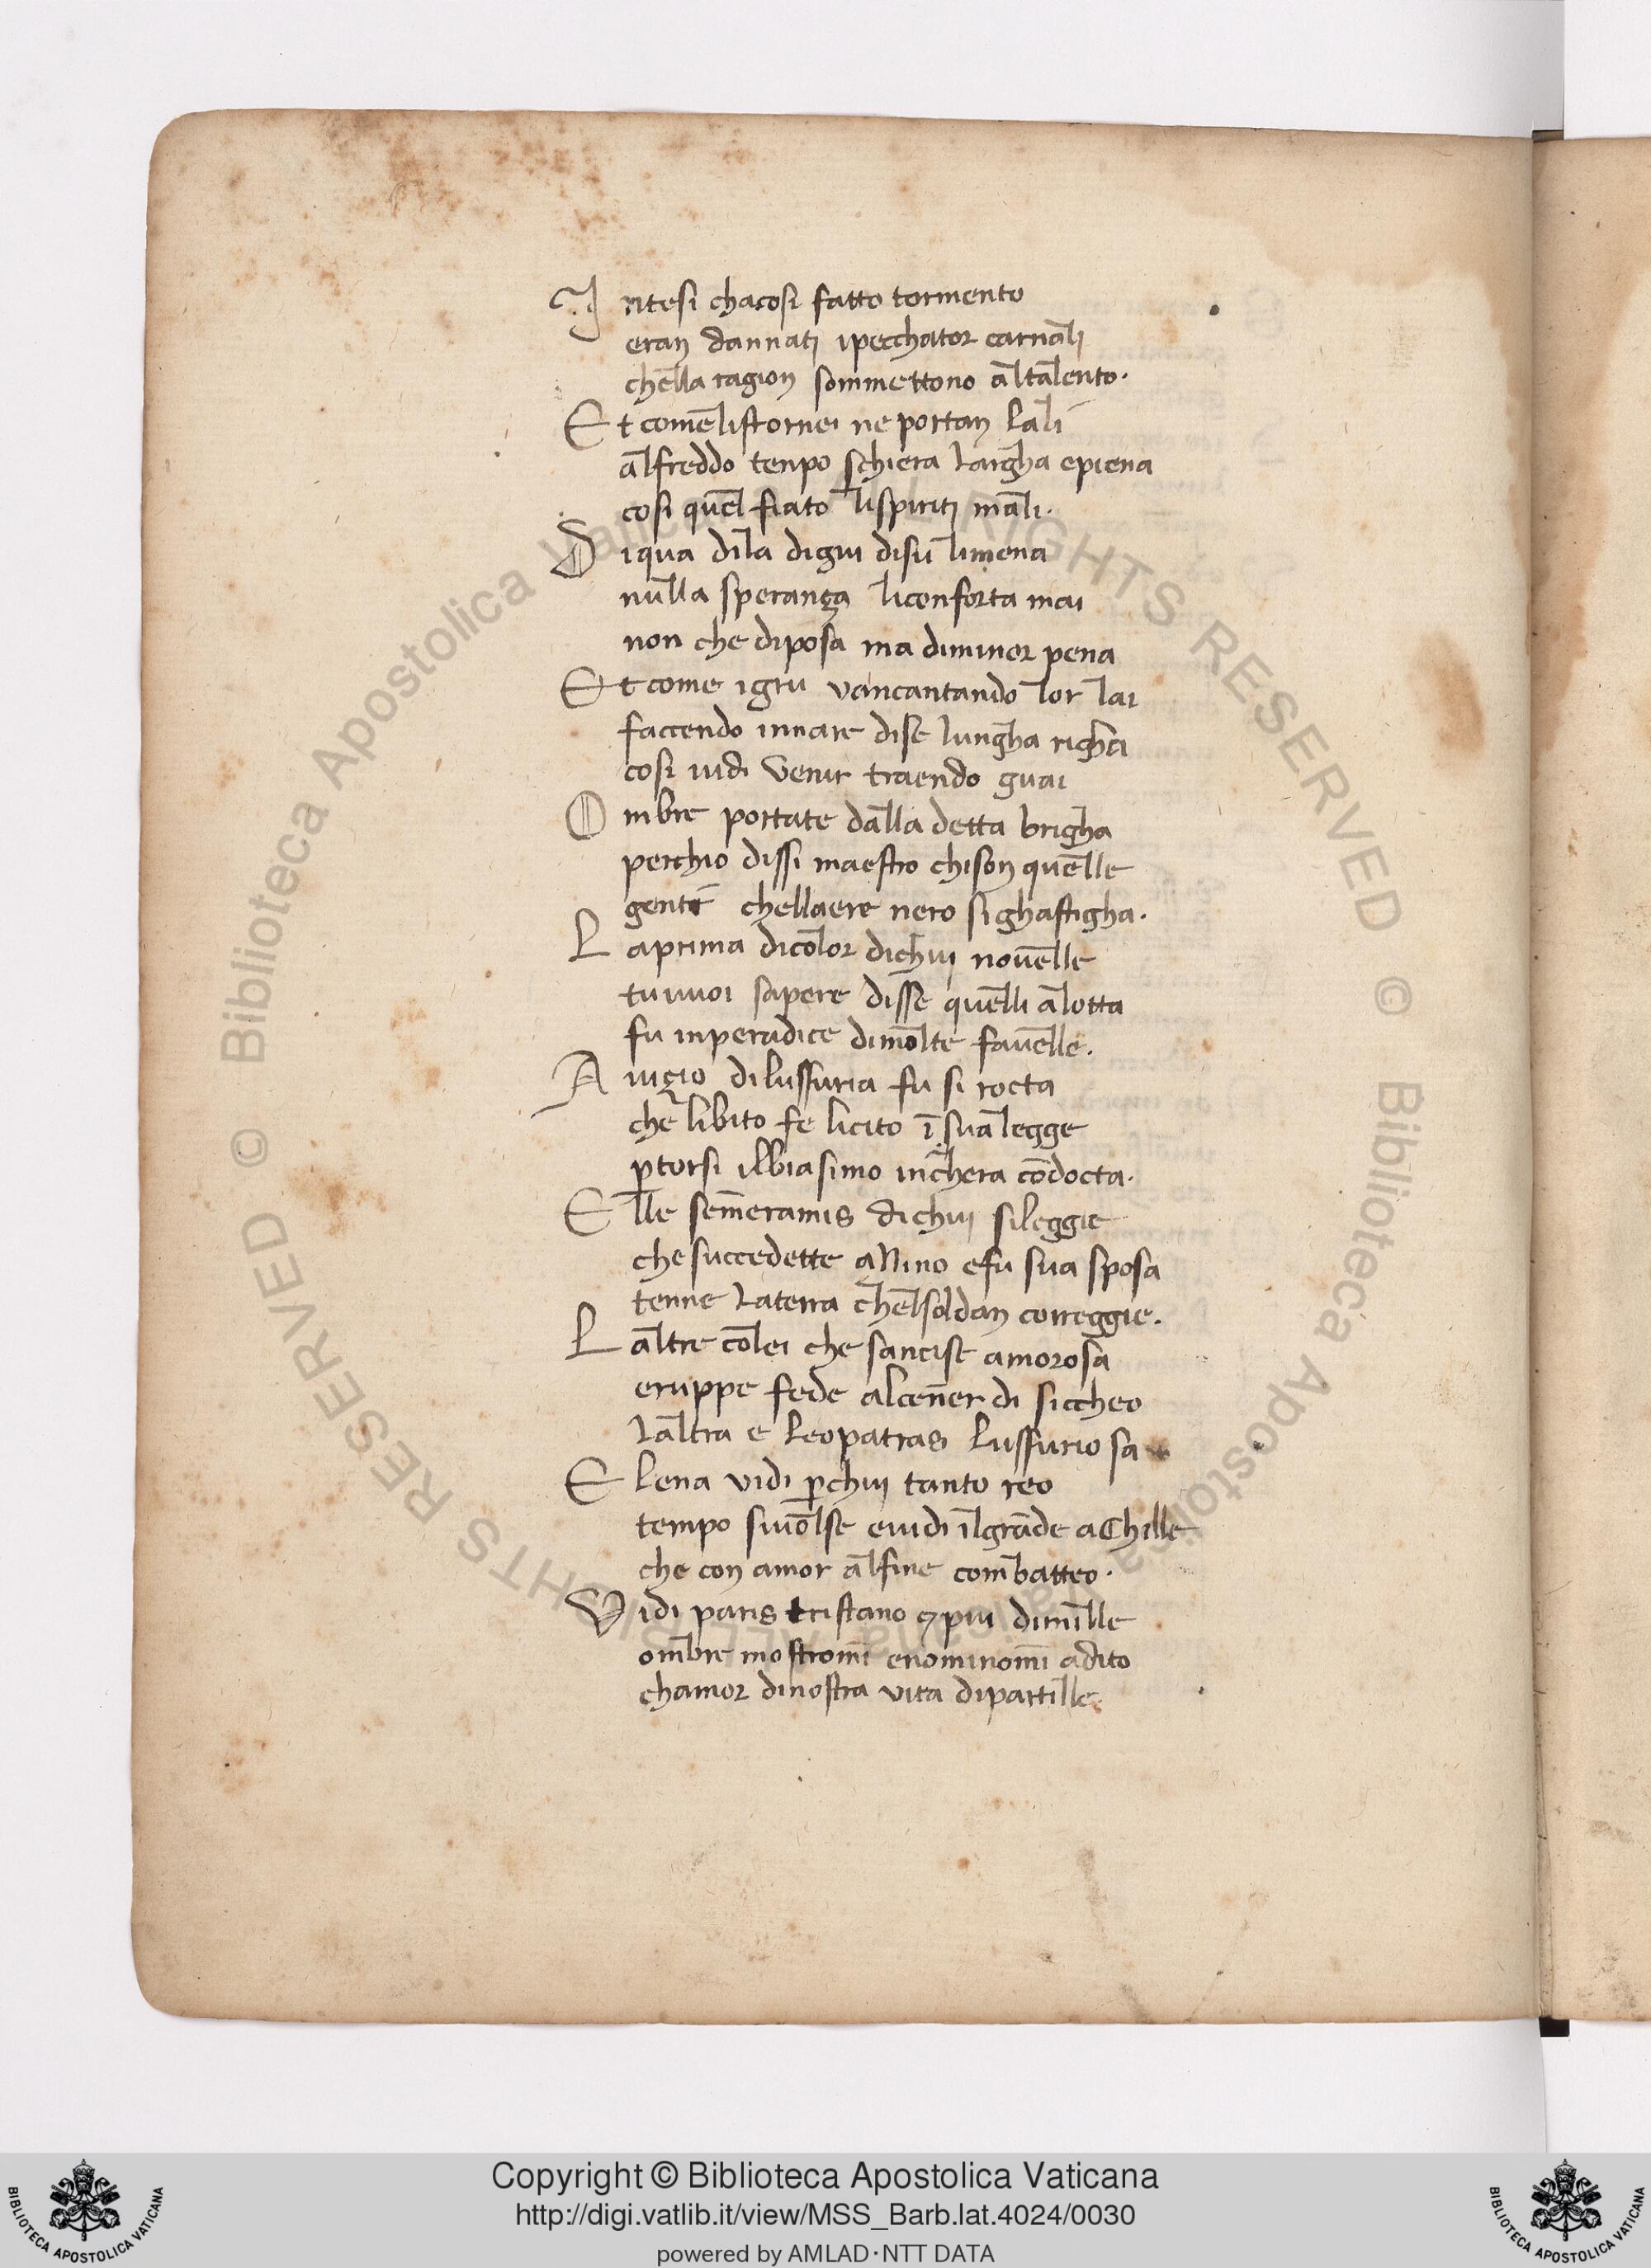 Intesi chacosi fatto tormento
eran dannati ipecchator carnali
chella ragion sommettono altalento.
Et comelistornei ne portan lali
alfreddo tenpo schiera largha epiena
cosi quel fiato lispiriti mali.
Diqua dila digiu disu limena
nulla speranza liconforta mai
non che diposa ma diminor pena
Et come igru vancantando lor lai
faccendo innare dise lungha righa
cosi uidi venir traendo guai
Ombre portate dalla detta brigha
perchio dissi maestro chison quelle
genti chellaere nero si ghastigha.
Laprima dicolor dichuj novelle
tuuuoi sapere disse quelli alotta
fu inperadice dimolte favelle.
Auizio dilussuria fu si rocta
che libito fe licito ī sua legge
ꝑtorsi ilbiasimo inchera cōdocta.
Elle semeramis dichuj sileggie
che succedette aNino efu sua sposa
tenne laterra chelsoldan correggie.
Laltre colei che sancise amorosa
eruppe fede alcener di siccheo
laltra e leopatras lussuriosa
Elena vidi ꝑchuj tanto reo
tempo siuolse euidi ilgrāde aChille
che con amor alfine combatteo.
Vidi paris tristano ⁊piu dimille
ombre mostromi enominomi adito
chamor dinostra vita dipartille.
© Biblioteca Apostolica Vaticana ALL RIGHTS RESERVED © Biblioteca Apostolica Vaticana ALL RIGHTS RESERVED
Copyright © Biblioteca Apostolica Vaticana
http://digi.vatlib.it/view/MSS_Barb.lat.4024/0030
powered by AMLAD·NTT DATA
BIBLIOTECA APOSTOLICA VATICANA
BIBLIOTECA APOSTOLICA VATICANA